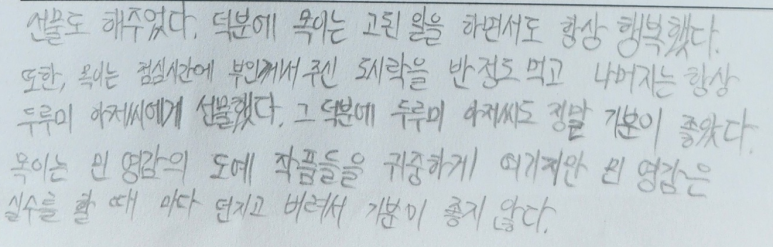 선물도 해주었다. 덕분에 목이는 고된 일을 하면서도 항상 행복했다.
또한, 목이는 점심시간에 부인께서 주신 도시락을 반 정도 먹고 나머지는 항상
두루미 아저씨에게 선물했다. 그 덕분에 두루미 아저씨도 정말 기분이 좋았다.
목이는 민 영감의 도예 작품들을 귀중하게 여기지만 민 영감은
실수를 할 때 마다 던지고 버려서 기분이 좋지 않다.